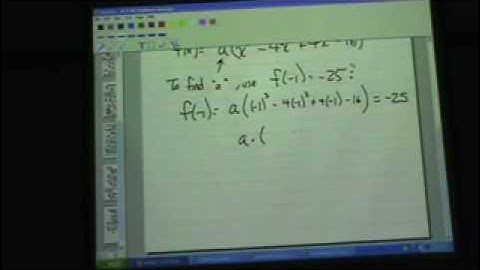 f(x) = a(x³ - 4x² + 4x - 16)
To find "a", use f(-1) = -25:
f(-1) = a((-1)³ - 4(-1)² + 4(-1) - 16) = -25
a · (